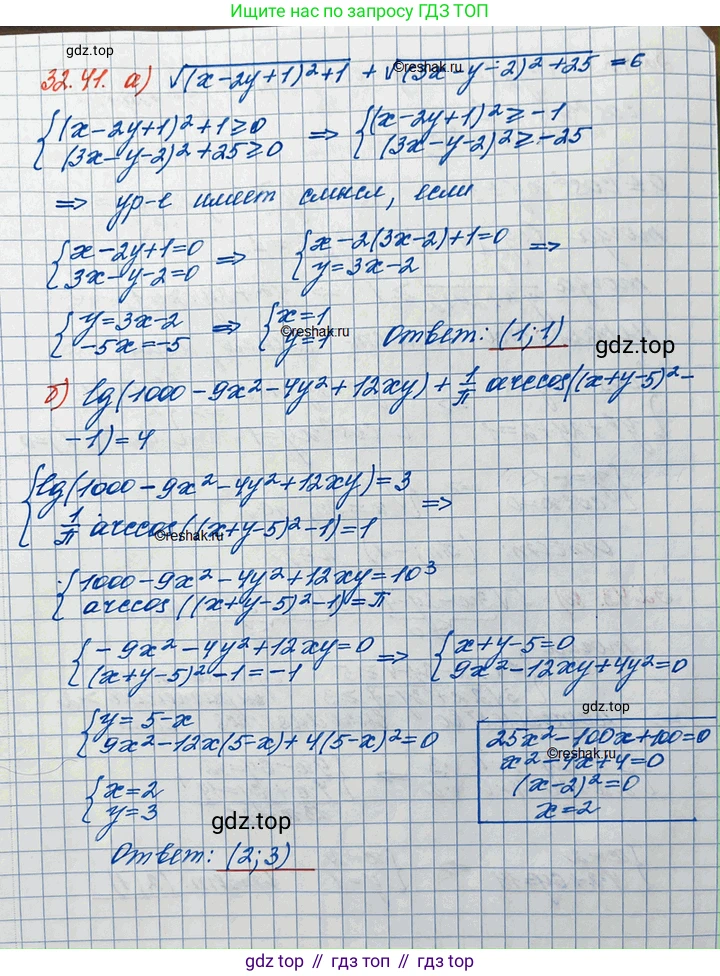 Ищите нас по запросу ГДЗ ТОП
gdz.top
32.41. а) √((x-2y+1)²+1) + √((3x-y-2)²+25) = 6
reshak.ru
{(x-2y+1)²+1≥0 ⇒ {(x-2y+1)²≥-1
{(3x-y-2)²+25≥0 {(3x-y-2)²≥-25
⇒ ур-е имеет смысл, если
{x-2y+1=0 ⇒ {x-2(3x-2)+1=0 ⇒
{3x-y-2=0 {y=3x-2
{y=3x-2 ⇒ {x=1
{-5x=-5 {y=1 Ответ: (1;1)
©reshak.ru
gdz.top
б) lg(1000-9x²-4y²+12xy) + 1/π arccos((x+y-5)²-
-1)=4
{lg(1000-9x²-4y²+12xy)=3 ⇒
{1/π arccos((x+y-5)²-1)=1
©reshak.ru
{1000-9x²-4y²+12xy=10³
{arccos((x+y-5)²-1)=π
{-9x²-4y²+12xy=0 ⇒ {x+y-5=0
{(x+y-5)²-1=-1 {9x²-12xy+4y²=0
gdz.top
{y=5-x
{9x²-12x(5-x)+4(5-x)²=0
25x²-100x+100=0
©reshak.ru
x²-4x+4=0
(x-2)²=0
x=2
{x=2
{y=3
gdz.top
Ответ: (2;3)
gdz.top // гдз.топ // gdz.top